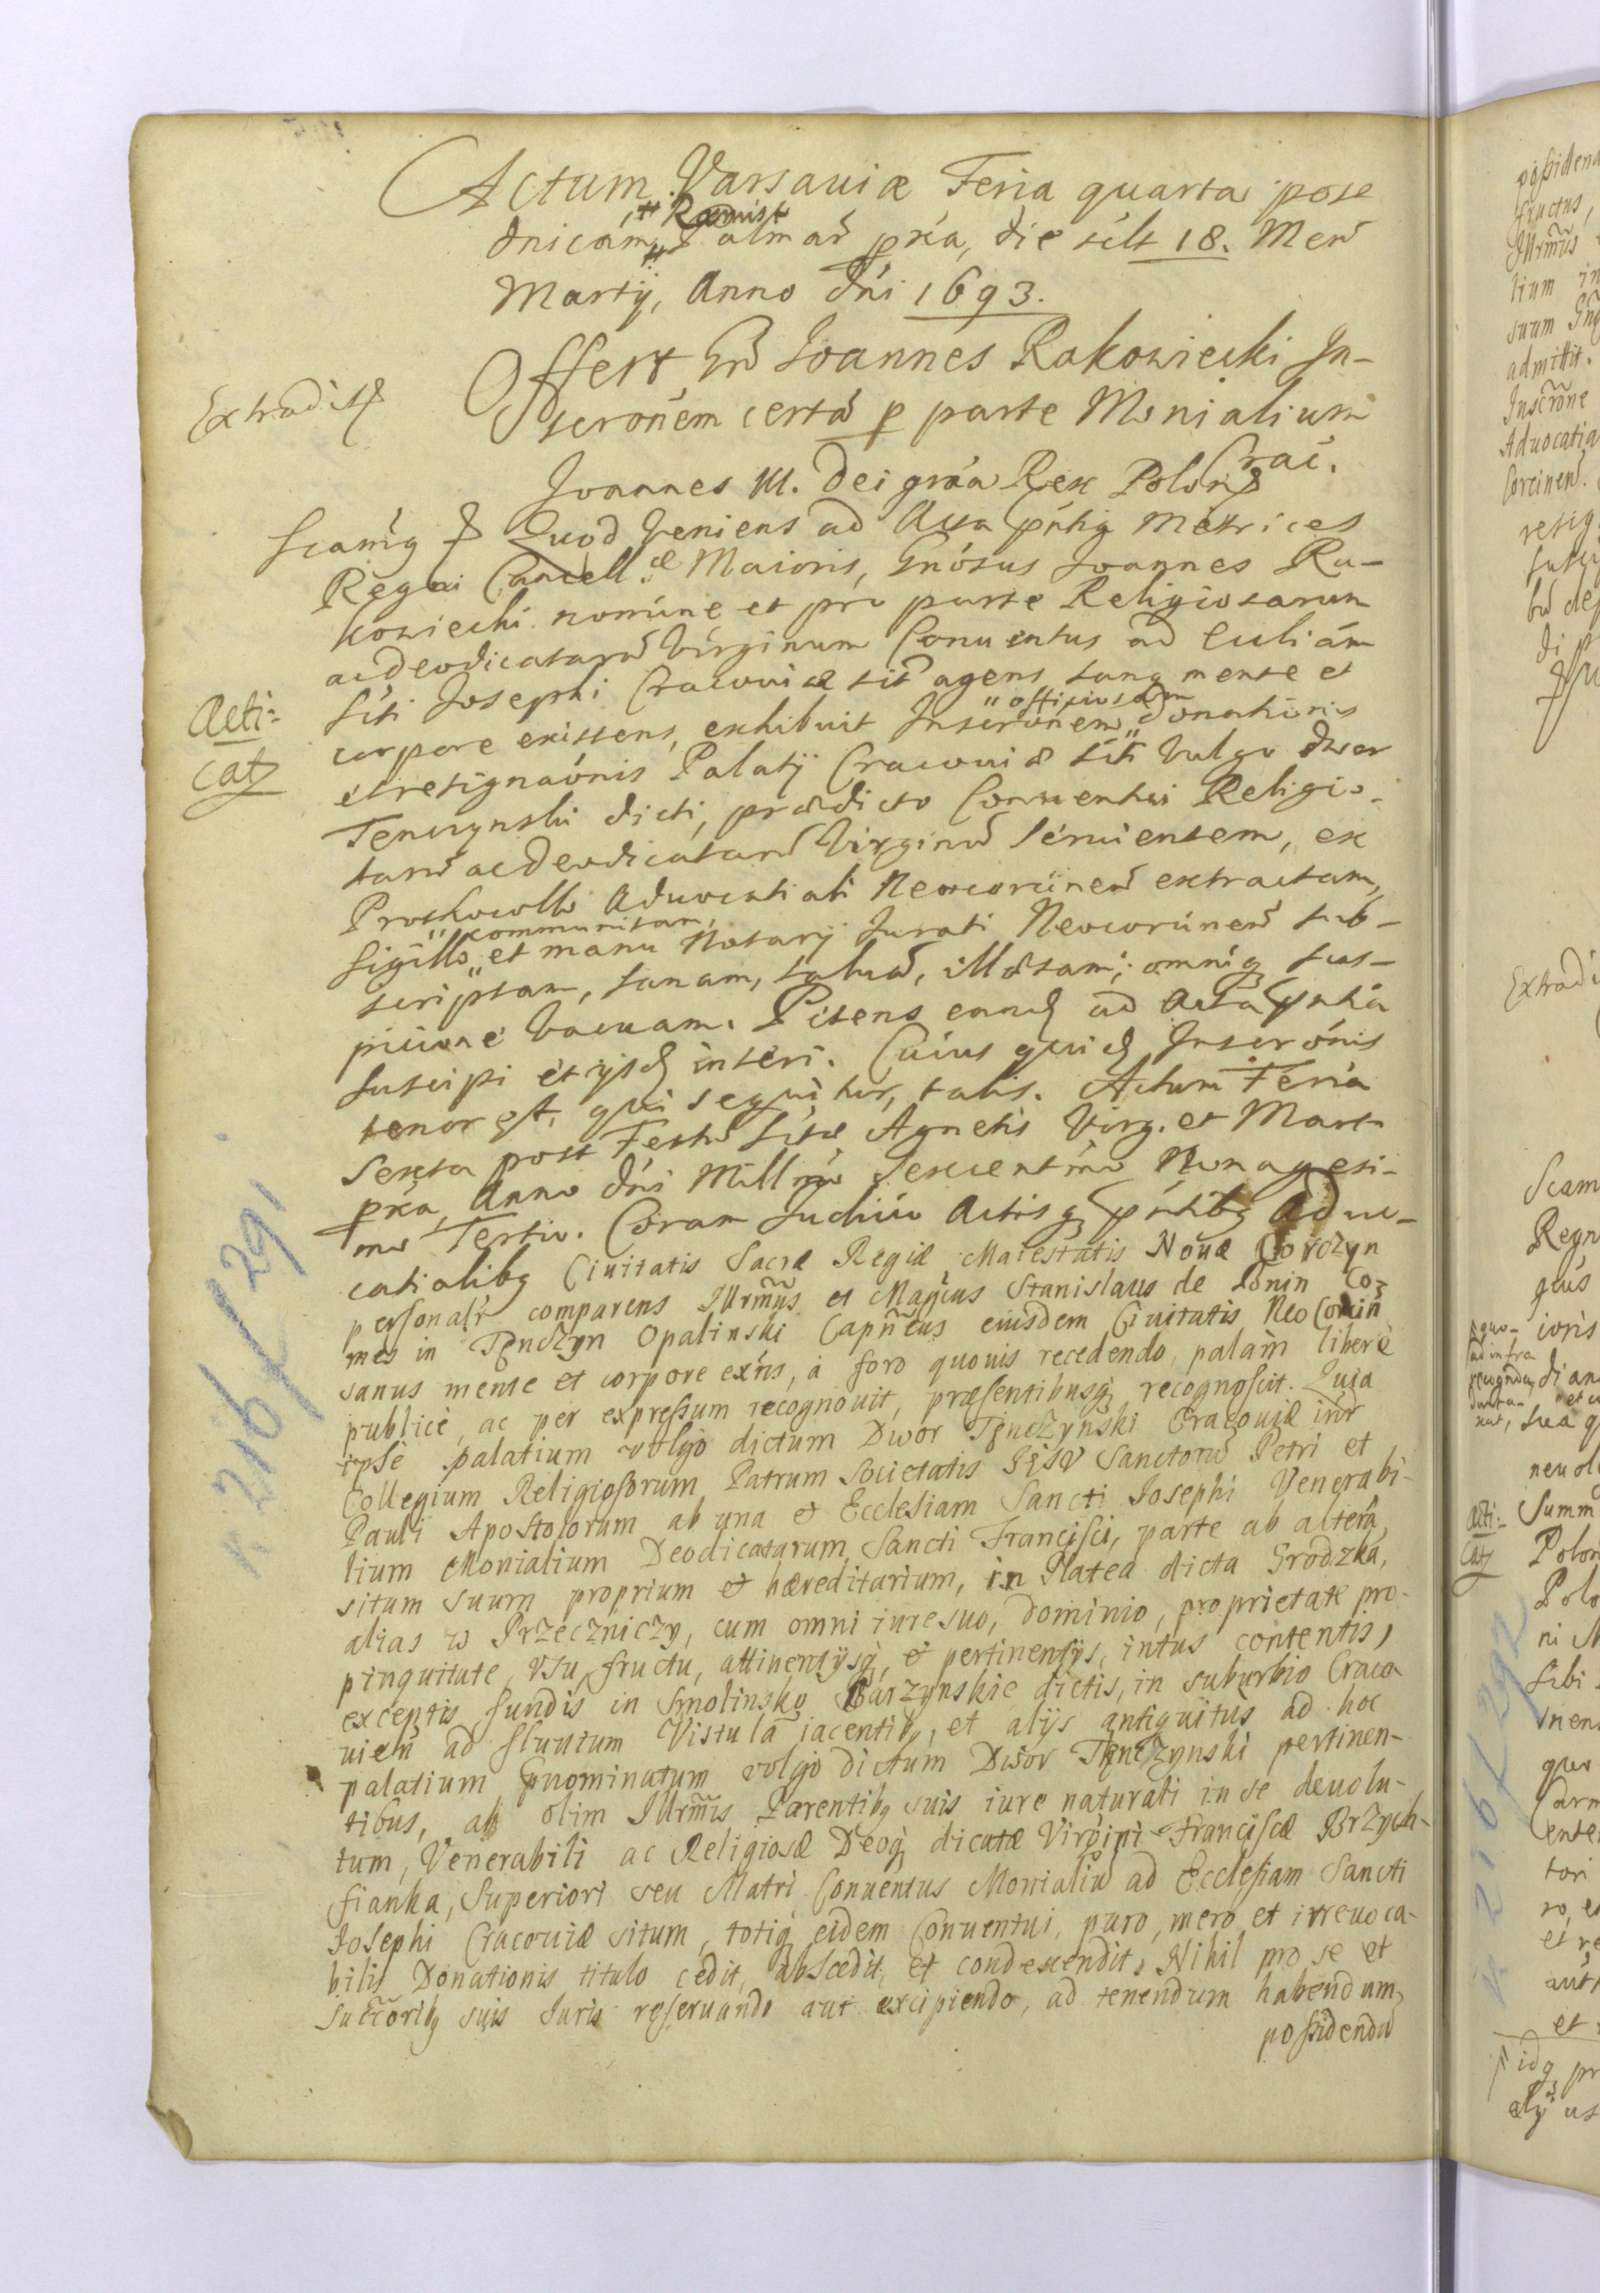 Actum Varsaviæ Feria quarta post
dnicam " Ramist Palmar̃ pxa, die silt 18. Men̄
Martij, Anno dńi 1693.
Offert Gn̄ Joannes Rakowiecki In-
Extradit
scronem certā p parte Monialium
Crac.
Joannes III. Dei grãa Rex Polon
Quod veniens ad Acta pńtia Metrices
Regni Cancell. æ Maioris, Gnosus Joannes Ra-
kowiecki nomine et pro parte Religiosarum
ac deodicatarū Virginum Conuentus ad Eccliam
Sti Josephi Cracouiæ sit̄ agens, sanus mente et
Acti:
corpore existens, exhibuit Inscronem " officiosam " donationis
cat
et resignaónis Palatij Cracouiæ siti vulgo dwor
Tenczynski dicti, prædicto Conuentui Religio-
sarū ac deodicatarū Virginū seruientem, ex
Prothocollo Aduocatiali Neocorcinen̄ extractam,
Sigillo " communitam, " et manu Notarij Jurati Neocorcinen̄ sub-
scriptam, sanam, saluā, illæsam, omniq sus-
picione vacuam. Petens eand ad Acta pńtia
suscipi et ijsd inseri. Cuius quid Inscronis
tenor est, qui sequitur, talis. Actum Feria
Sexta post Festū Stæ Agnetis Virg. et Mart.
pxa Anno dńi Millmo Sexcentmo Nonagesi-
mo Tertio. Coram Judicio Actisq pńtibq Aduo-
catialibq Ciuitatis Sacræ Regiæ Maiestatis Nouæ Corczyn
personalr comparens Illrm̃us et Magcus Stanislaus de Bnin Co-
mes in Tęnczyn Opalinski Capn̄eus eiusdem Ciuitatis Neo Corcin̄
sanus mente et corpore exñs, à foro quouis recedendo, palàm liberè
publicè, ac per expressum recognouit, præsentibusq recognoscit. Quia
ipse palatium volgo dictum Dwor Tęnczynski Cracouiæ intr̄
Collegium Religiosorum Patrum Societatis JESV Sanctorū Petri et
Pauli Apostolorum ab una et Ecclesiam Sancti Josephi Venerabi-
lium Monialium Deodicatarum Sancti Francisci, parte ab altera,
situm suum proprium et hæreditarium, in Platea dicta Grodzka,
alias w Przeczniczy, cum omni iure suo, dominio, proprietate pro-
pinquitate, Vsu, fructu, attinentijsq, et pertinentijs, intus contentis,
exceptis fundis in Smolinsko Barzynskie dictis, in suburbio Craco
uien̄ ad fluutum Vistulā iacentibq, et alijs antiquitùs ad hoc
palatium pnominatum volgo dictum Dwor Tęnczynski pertinen-
tibus, ab olim Illrm̃is Parentibq suis iure naturali in se deuolu-
tum, Venerabili ac Religiosæ Deoq dicatæ Virgini Franciscæ Brzych-
fianka, Superiori seu Matri Conuentus Monialiū ad Ecclesiam Sancti
Josephi Cracouiæ situm, totiq eidem Conuentui, puro, mero, et irreuoca-
bilis Donationis titulo cedit, abscedit, et condescendit, Nihil pro se et
succ̃oribq suis Juris reseruando aut excipiendo, ad tenendum habendum,
possidendū
k 216/291